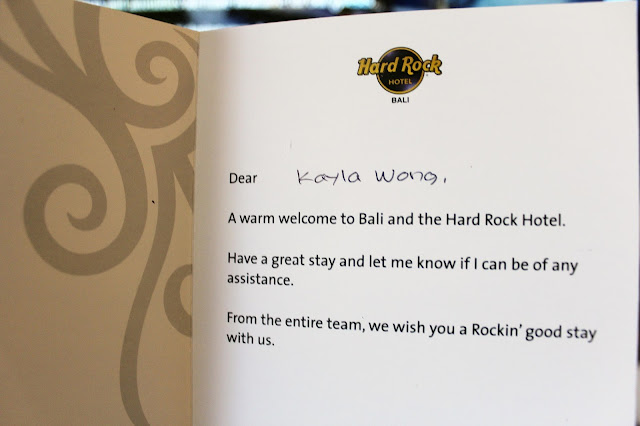 Hard Rock
HOTEL
BALI
Dear Kayla Wong,
A warm welcome to Bali and the Hard Rock Hotel.
Have a great stay and let me know if I can be of any
assistance.
From the entire team, we wish you a Rockin' good stay
with us.